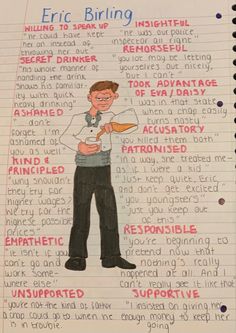 Eric Birling
WILLING TO SPEAK UP
"he could have kept
her on instead of
throwing her out"
SECRET DRINKER
"his whole manner of
handling the drink
shows his familiar-
ity with quick
heavy drinking"
ASHAMED
"I don't
forget I'm
ashamed of
you as well"
KIND &
PRINCIPLED
"why shouldn't
they try for
higher wages?
We try for the
highest possible
prices"
EMPATHETIC
"it isn't if you
can't go and
work some-
where else"
UNSUPPORTED
"you're not the kind of father
a chap could go to when he
's in trouble"
INSIGHTFUL
"he was our police
inspector all right"
REMORSEFUL
"you lot may be letting
yourselves out nicely,
but I can't"
TOOK ADVANTAGE
OF EVA/DAISY
"I was in that state
when a chap easily
turns nasty"
ACCUSATORY
"you killed them both"
PATRONISED
"in a way, she treated me
as if I were a kid"
"Just keep quiet, Eric
and don't get excited"
"you youngsters"
"Just you keep out
of this"
RESPONSIBLE
"you're beginning to
pretend now that
nothing's really
happened at all. And I
can't really see it like that
SUPPORTIVE
"I insisted on giving her
enough money to keep her
going"